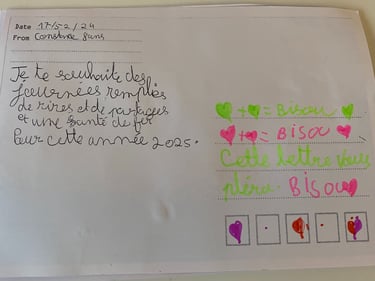 Date 17/12/24
From Constance 8ans
Je te souhaite des
journées remplies
de rires et de partages
et une santé de fer
Pour cette année 2025.
+ = Bisou
+ = Bisou
Cette lettre vous
pléra. Bisou